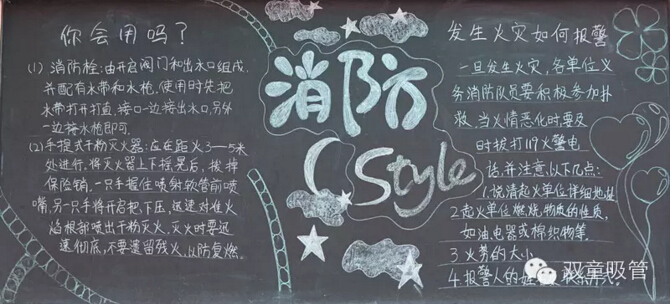 你会用吗？
(1) 消防栓：由开启阀门和出水口组成，
并配有水带和水枪，使用时先把
水带打开打直，接口一边接出水口，另外
一边接水枪即可。
(2) 手提式干粉灭火器：应在距火3—5米
处进行，将灭火器上下摇晃后，拔掉
保险销，一只手握住喷射软管前喷
嘴，另一只手将开启把下压，迅速对准火
焰根部喷出干粉灭火，灭火时要迅
速彻底，不要遗留残火，以防复燃。
消防
Style
发生火灾如何报警
一旦发生火灾，各单位义
务消防队员要积极参加扑
救，当火情恶化时要及
时拔打119火警电
话，并注意以下几点：
1.说清起火单位详细地址
2.起火单位燃烧物质的性质，
如油电器或棉织物等
3.火势的大小
4.报警人的姓
双童吸管